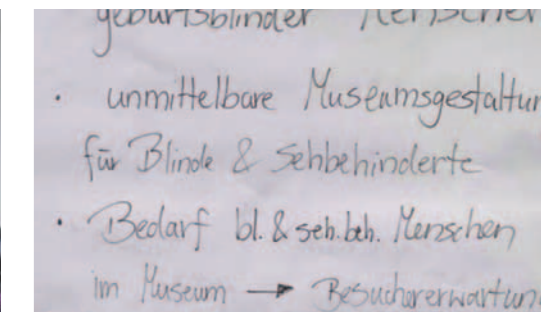 geburtsblinder Menschen
· unmittelbare Museumsgestaltun
für Blinde & Sehbehinderte
· Bedarf bl. & seh.beh. Menschen
im Museum → Besuchererwartun